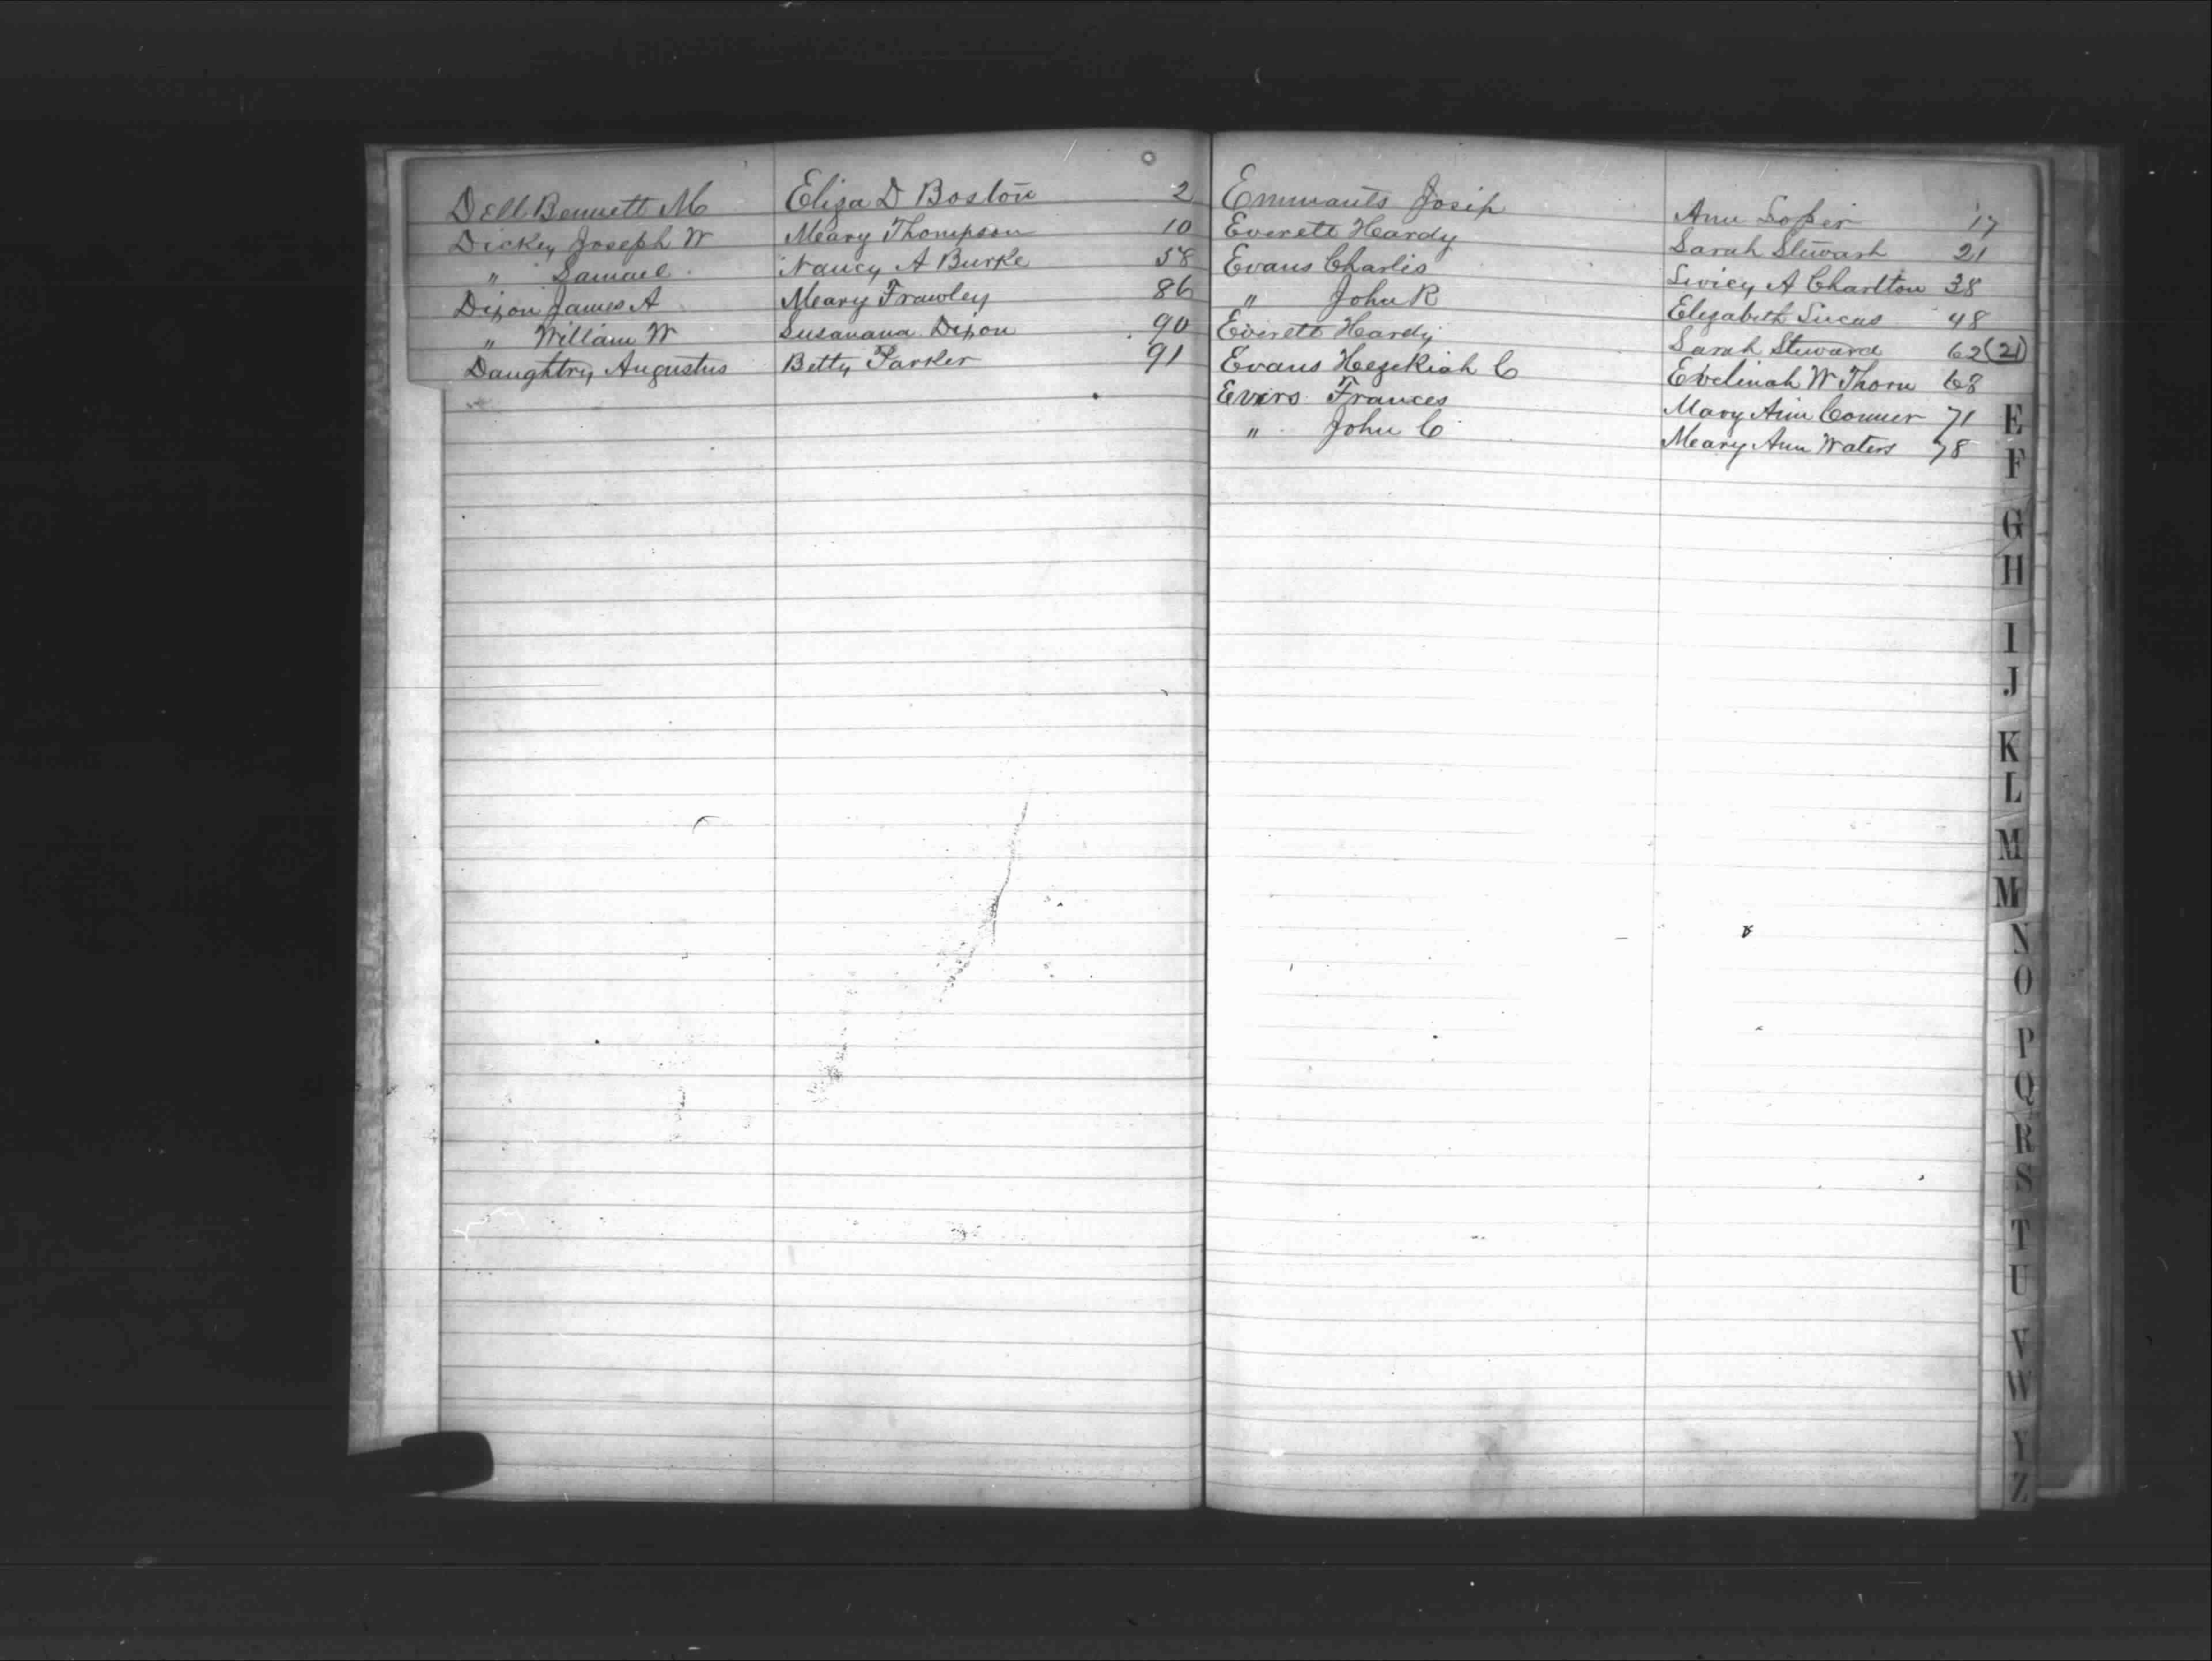 Dell Bennett M Eliza D Boston 2
Dickey Joseph W Meary Thompson 10
" Samuel Nancy A Burke 58
Dixon James A Meary Frawley 86
" William W Susanana Dixon 90
Daughtry Augustus Betty Parker 91
Emmants Josip Ann Loper 17
Everett Hardy Sarah Stewart 21
Evans Charlis Livicy A Charlton 38
" John R Elizabeth Lucas 48
Everett Hardy Sarah Steward 62 (21)
Evans Hezekiah C Evelinah W Thorn 68
Evers Frances Mary Ann Conner 71
" John C Meary Ann Waters 78
E
F
G
H
I
J
K
L
M
M
N
O
P
Q
R
S
T
U
V
W
Y
Z